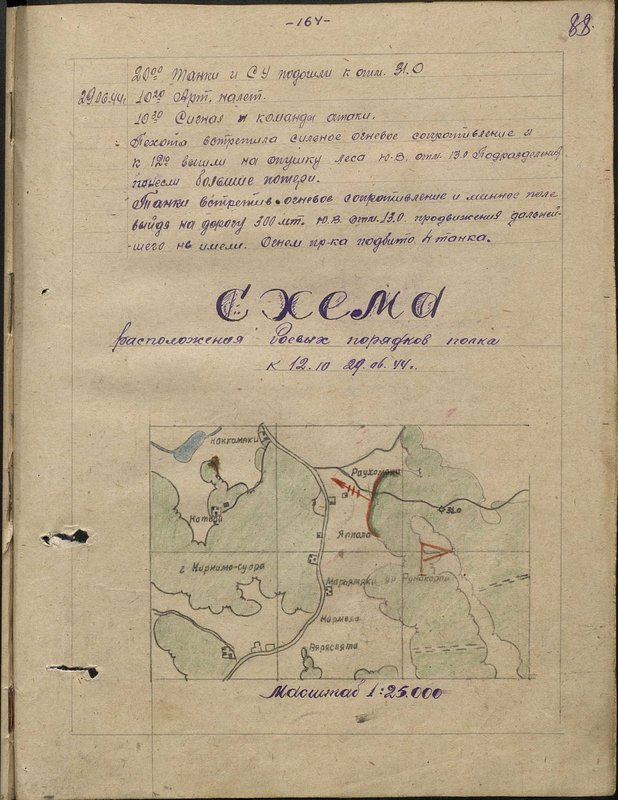 -164-
88.
20⁰⁰ Танки и СУ подошли к отм. 31.0
29.06.44г. 10²⁰ Арт. налет.
10³⁰ Сигнал и команды атаки.
Пехота встретила сильное огневое сопротивление и
к 12⁰⁰ вышли на опушку леса Ю.В. отм. 13.0 Подразделения
понесли большие потери.
Танки встретив огневое сопротивление и минное поле
выйдя на дорогу 300 мт. Ю.В. отм. 13.0. продвижения дальней-
-шего не имели. Огнем пр-ка подбито 4 танка.
СХЕМА
расположения боевых порядков полка
к 12.10 29.06.44г.
Раухомяки
31.0
Яппала
Марьямяки ур.
Вяряспята
Масштаб 1:25.000